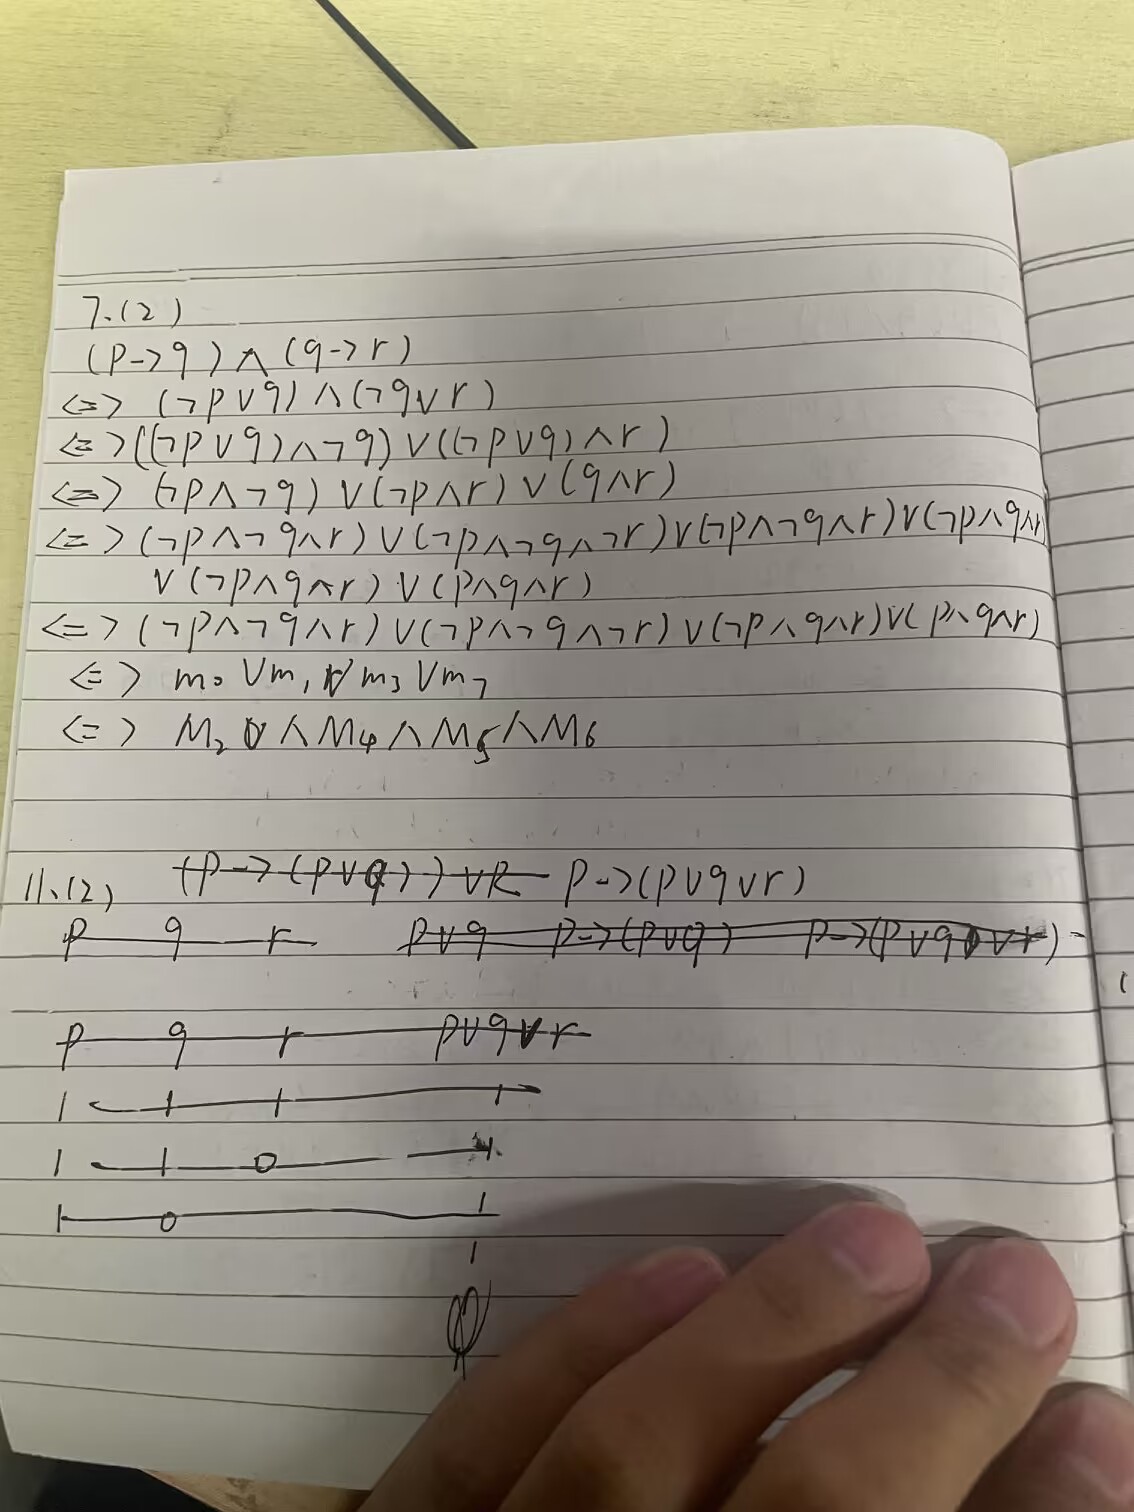 7.(2)
(p->q)∧(q->r)
<=> (¬p∨q)∧(¬q∨r)
<=>((¬p∨q)∧¬q)∨((¬p∨q)∧r)
<=> (¬p∧¬q)∨(¬p∧r)∨(q∧r)
<=>(¬p∧¬q∧r)∨(¬p∧¬q∧¬r)∨(¬p∧¬q∧r)∨(¬p∧q∧r)
∨(¬p∧q∧r)∨(p∧q∧r)
<=>(¬p∧¬q∧r)∨(¬p∧¬q∧¬r)∨(¬p∧q∧r)∨(p∧q∧r)
<=> m₀∨m₁∨m₃∨m₇
<=> M₂∧M₄∧M₅∧M₆
11.(2) (p->(p∨q))∨R p->(p∨q∨r)
p q r p∨q p->(p∨q) p->(p∨q∨r)
p q r p∨q∨r
1 1 1 1
1 1 0 1
1 0 1
1